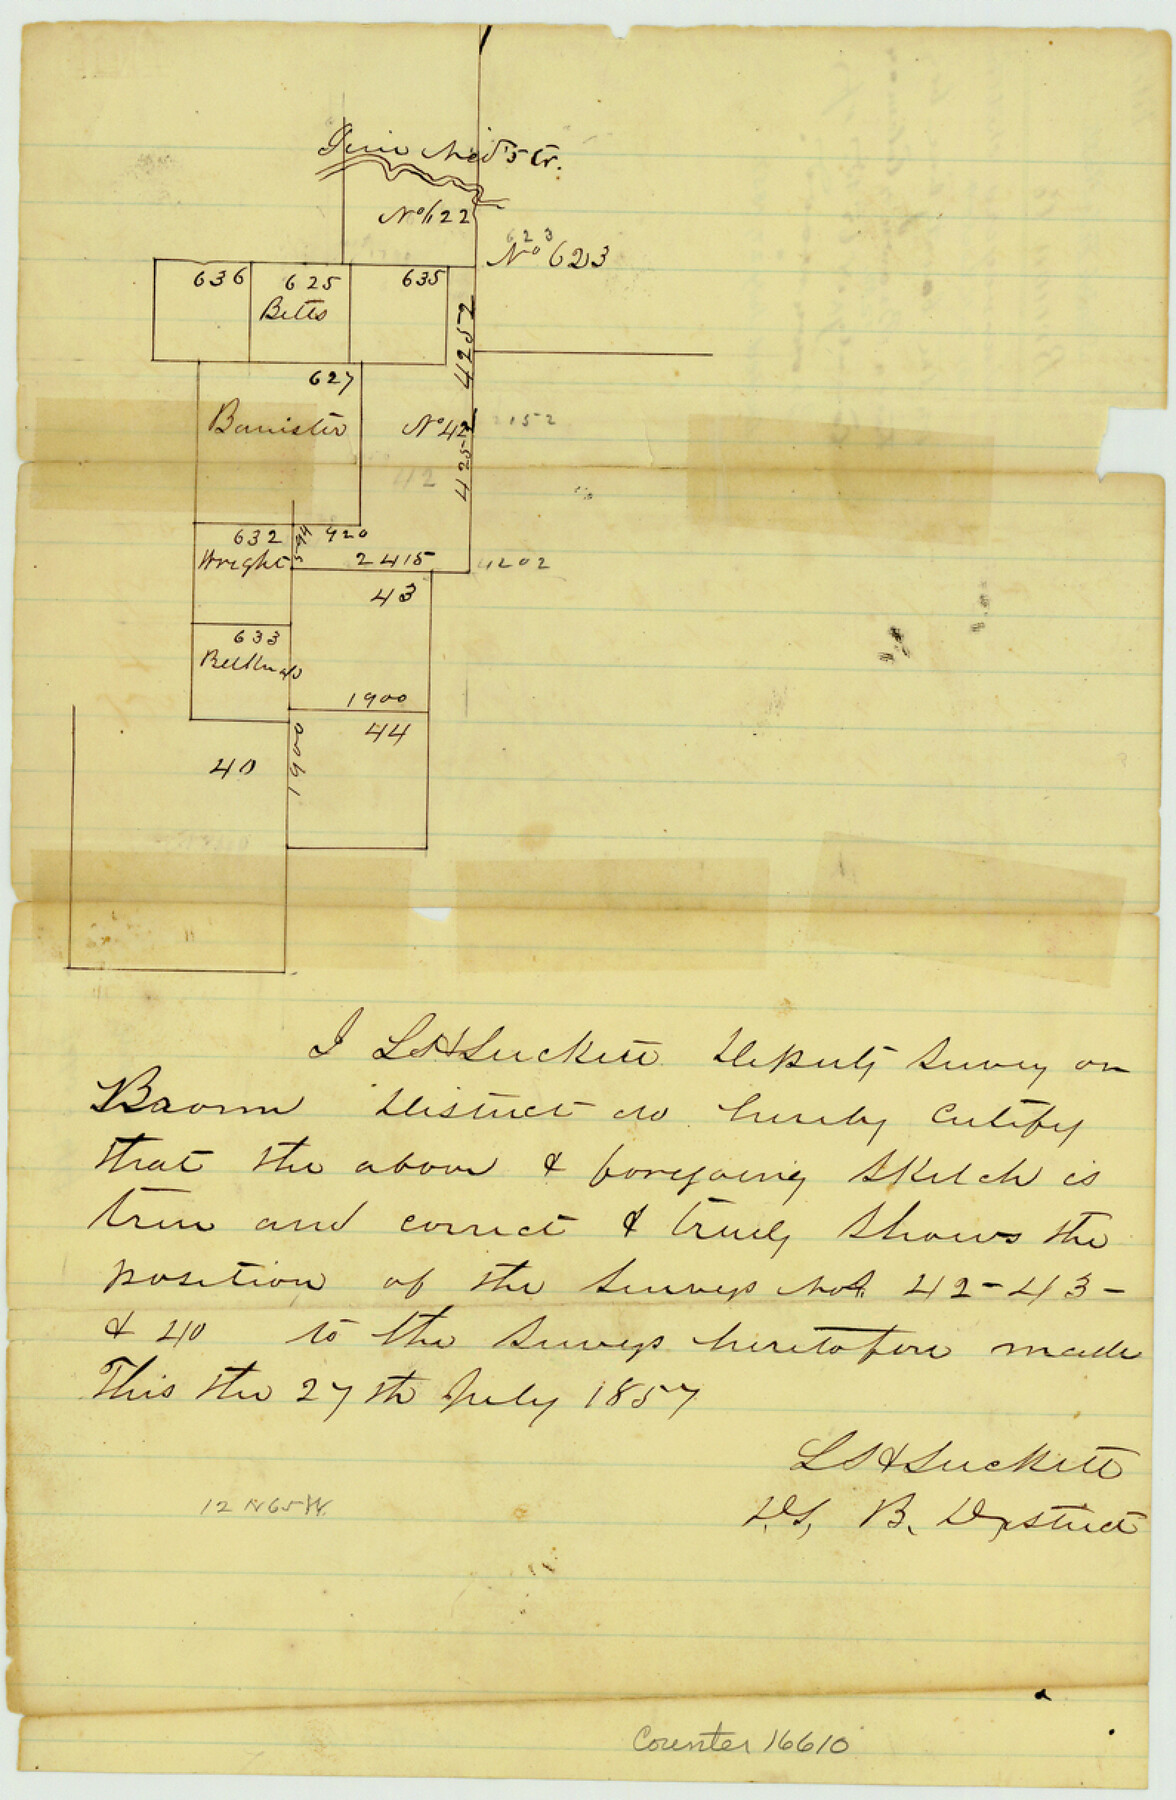 Jim Ned's Cr.
No 622
623
No 623
636 625 635
Betts
4252
627
Bannister
No 42
2152
4252
42
632
Wright
594
920
2415
4202
43
633
1900
44
40
1900
I L S H Luckett Deputy Survey on
Brown District do hereby Certify
that the above & foregoing Sketch is
true and correct & truely Shows the
position of the Surveys Nos. 42-43-
& 40 to the Surveys heretofore made
This the 27th July 1857
L S H Luckett
D.S. B. District
12 N65W.
Counter 16610